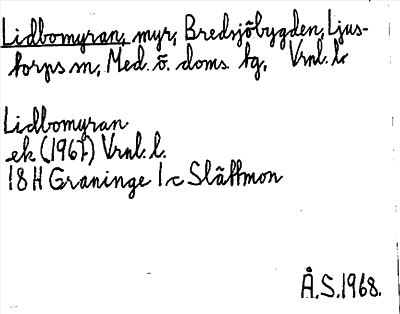 Lidbomyran, myr, Bredsjöbygden, Ljus-
torps sn, Med. ö. doms. tg, Vrnl. l.
Lidbomyran
ek (1967) Vrnl. l.
18H Graninge 1c Slättmon
Å.S. 1968.